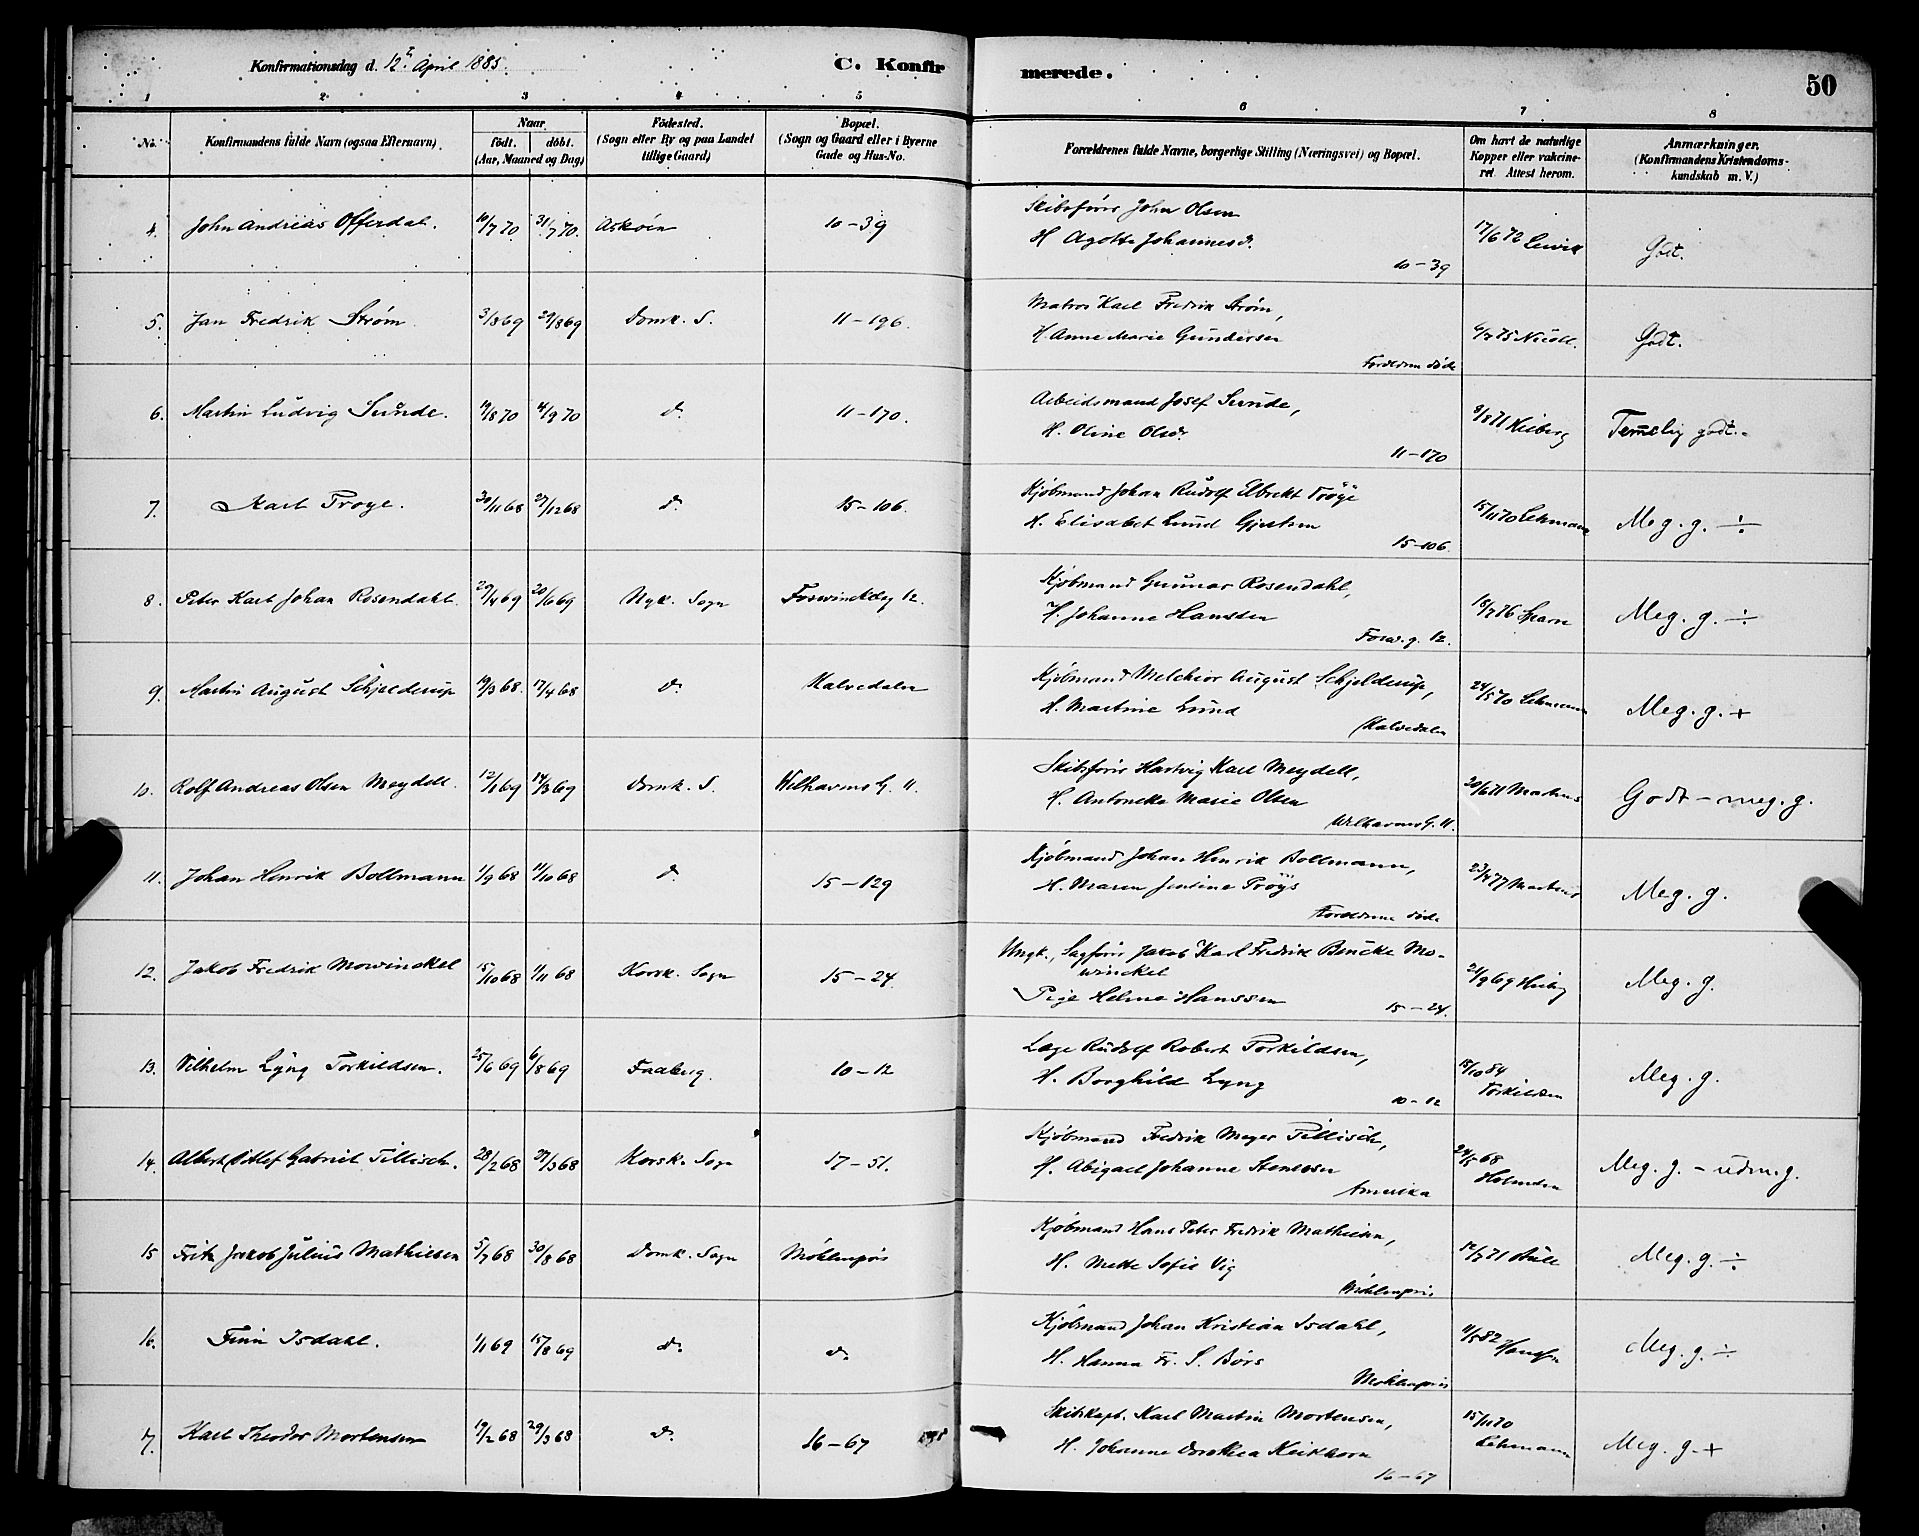 Konfirmationsdag d. 12te April 1885.
C. Konfirmerede.
50
1 2 3 4 5 6 7 8
No. Konfirmandens fulde Navn (ogsaa Efternavn). Naar født. døbt. (Aar, Maaned og Dag) Fødested. (Sogn eller By og paa Landet tillige Gaard) Bopæl. (Sogn og Gaard eller i Byerne Gade og Hus-No. Forældrenes fulde Navne, borgerlige Stilling (Næringsvei) og Bopæl. Om havt de naturlige Kopper eller vakcineret. Attest herom. Anmærkninger. (Konfirmandens Kristendomskundskab m. V.)
4. John Andreas Offerdal. 10/7 70 31/7 70. Askøen 10-39 Skibsfører John Olsen
H Agotte Johannesd.
10-39
17/6 72 Godt.
5. Jan Fredrik Strøm. 3/8 69 29/8 69 Domk. S. 11-196. Matros Karl Fredrik Strøm,
H. Anne Marie Gundersen
Forældrene døde
6/7 75 Nicoll. Godt.
6. Martin Ludvig Sunde. 19/8 70 4/9 70 do. 11-170. Arbeidsmand Josef Sunde,
H. Oline Olsdr.
11-170
9/8 71 Temelig godt.
7. Karl Troye. 30/11 68 27/12 68 do. 15-106. Kjøbmand Johan Rudolf Elbrekt Trøye
H. Elisabet Lund Gjertsen
15-106.
15/11 70 Lehmann Meg. g. ÷
8. Peter Karl Johan Rosendahl. 29/4 69 20/6 69 Nyk. Sogn Foswinckelg 12. Kjøbmand Gunnar Rosendahl,
H. Johanne Hanssen
Fosw. g. 12.
18/7 76 Meg. g. ÷
9. Martin August Schjelderup 19/3 68. 17/4 68 do. Kalvedalen Kjøbmand Melchior August Schjelderup,
H. Martine Lund
Kalvedalen
24/5 70 Lehmann Meg. g. +
10. Rolf Andreas Olsen Meydell. 12/1 69 14/3 69 Domk. S. Welhavens G. 11. Skibsfører Hartvig Karl Meydell,
H. Antonette Marie Olsen
Welhavens G. 11.
20/6 71 Martens Godt - meg. g.
11. Johan Henrik Bollmann 1/9 68 11/10 68 do. 15-129 Kjøbmand Johan Henrik Bollmann,
H. Maren Jentine Trøys
Forældrene døde
23/4 77 Martens Meg. g.
12. Jakob Fredrik Mowinckel 15/10 68 1/11 68 Korsk. Sogn 15-24. Ungk., Sagfører Jakob Karl Fredrik Bencke Mo-
winckel
Pige Helene Hanssen 15-24.
21/9 69 Heiberg Meg. g.
13. Vilhelm Lyng Torkildsen. 25/6 69 6/8 69 Faaberg. 10-12 Læge Rudolf Robert Torkildsen,
H. Borghild Lyng
10-12
18/10 84 Torkildsen Meg. g.
14. Albert Ditlef Gabriel Tillisch. 28/2 68 29/3 68 Korsk. Sogn 17-51. Kjøbmand Fredrik Meyer Tillisch,
H. Abigael Johanne Stenersen
Amerika
24/5 68 Meg. g. - udm. g.
15 Fritz Jakob Julius Mathiesen 5/7 68 30/8 68 Domk. Sogn Møhlenpris Kjøbmand Hans Peter Fredrik Mathiesen,
H. Mette Sofie Vig
Møhlenpris
12/7 71 Bull Meg. g. ÷
16. Finn Isdahl. 1/1 69 15/8 69 do. do. Kjøbmand Johan Kristian Isdahl,
H. Hanna Fr. S. Børs
Møhlenpris
11/5 82 Meg. g. ÷
17. Karl Theodor Mortensen 19/2 68 29/3 68 do. 16-67 Skibskapt. Karl Martin Mortensen,
H. Johanne Dorothea Krikhorn
16-67
15/11 70 Lehmann Meg. g. +